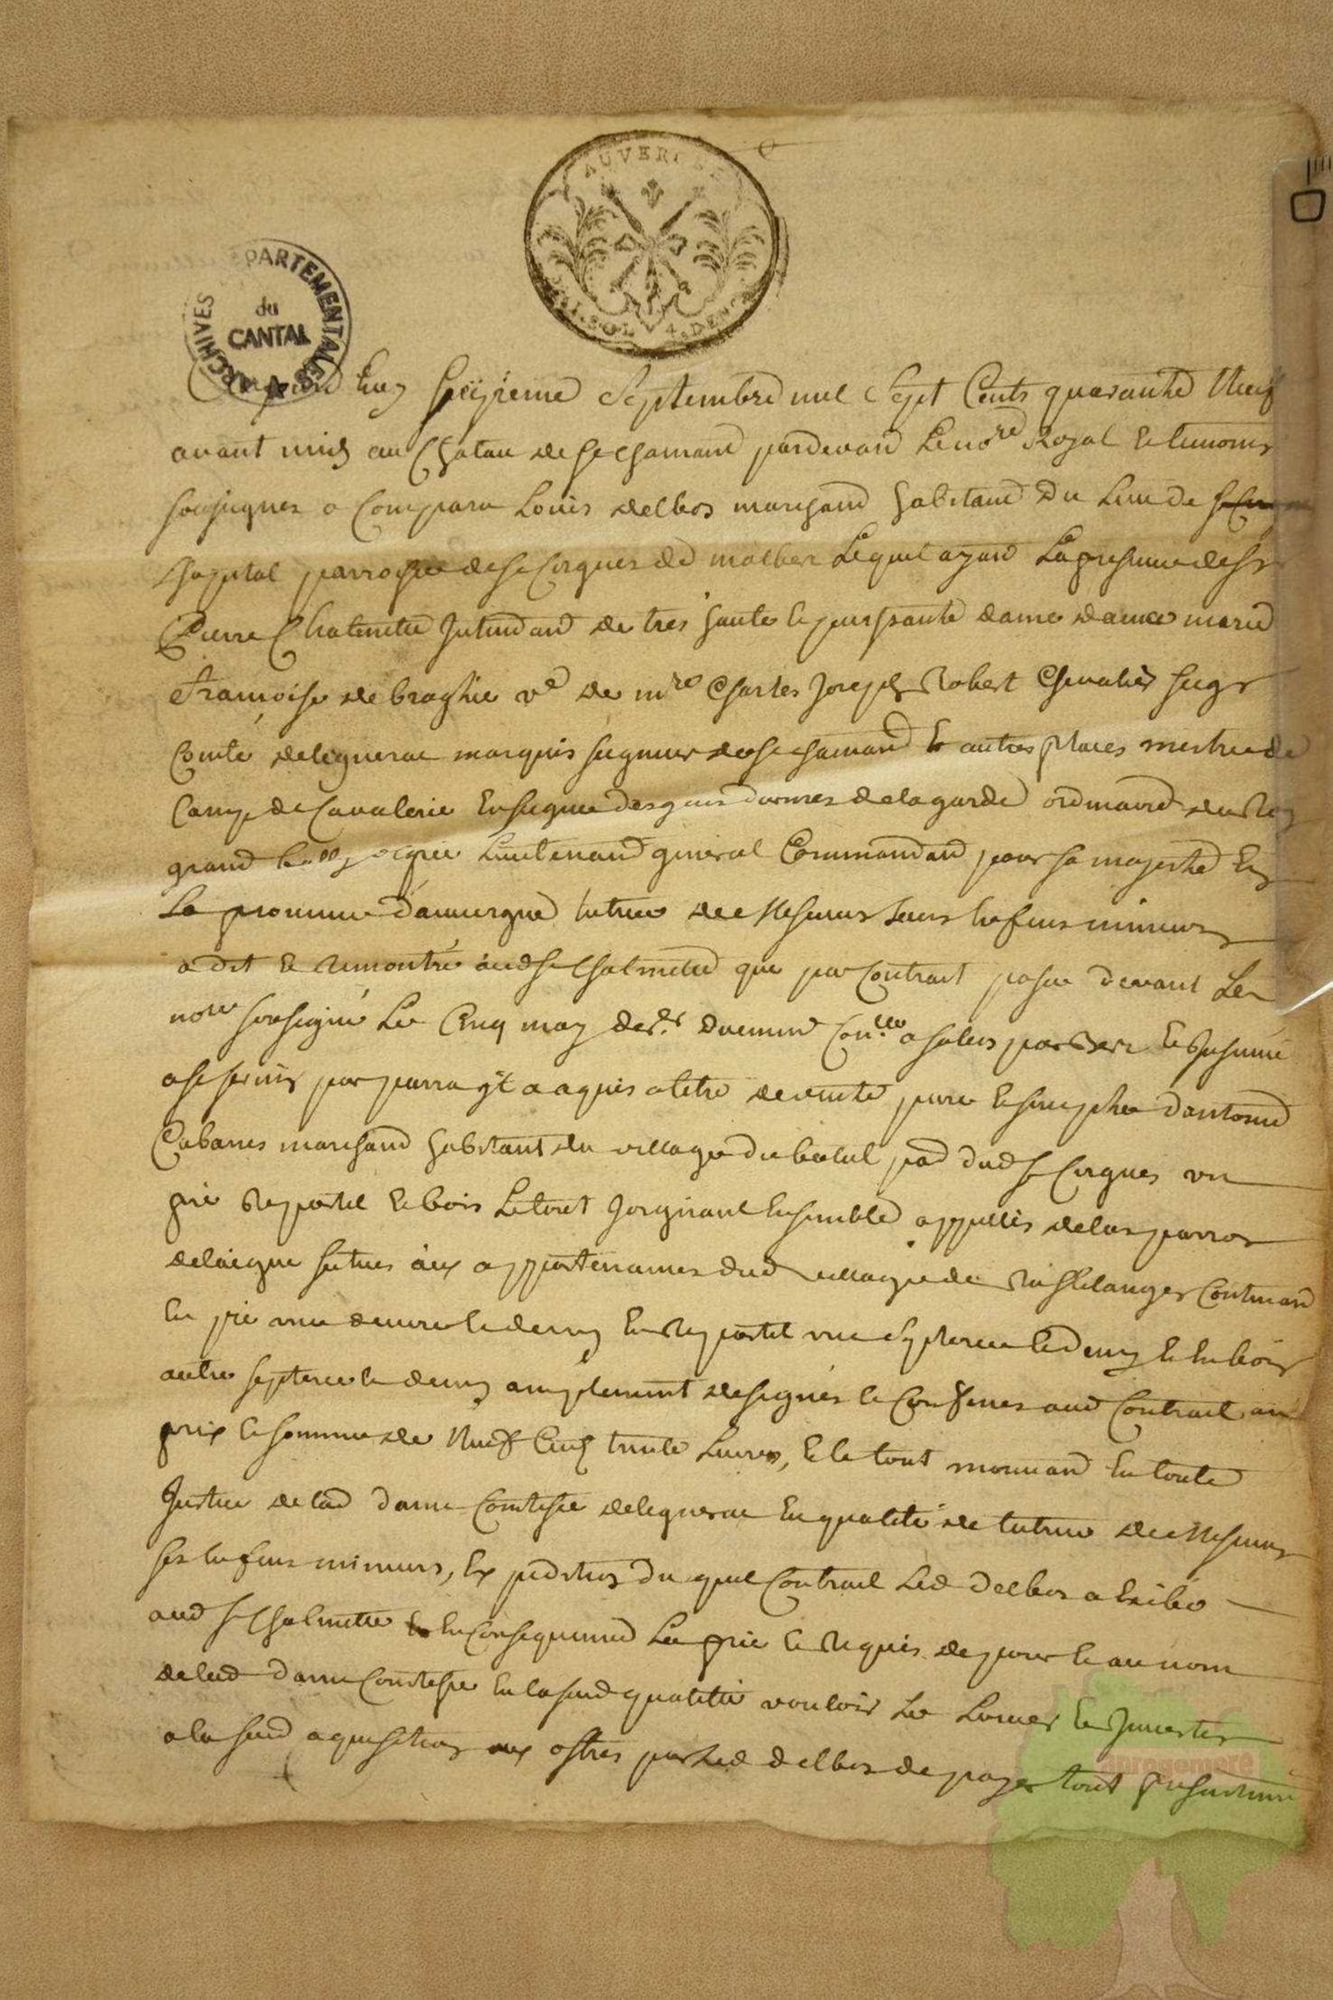 AUVERGNE
SOL 4 DEN
ARCHIVES DEPARTEMENTALES
du
CANTAL
huy seizieme Septembre mil Sept Cents quarante Neuf
avant midy au Chatau de St Chamand pardevant Le nore Royal et temoins
soussignes a Comparu Louis delbos marchand habitant Du Lieu de
parroisse de St Cirgues de malbert Lequel ayant La presence de Sr
Pierre Chalmette Intendant de tres haute et puissante dame dame marie
Francoise de broglie ve de mre Charles Joseph Robert Chevalier seigr
Comte delignerac marquis seigneur de St chamand et autres places mestre de
Camp de Cavalerie Enseigne des gens darmes de la garde ordinaire du Roy
grand bailly Lieutenant general Commandant pour sa majesté En
La province dauvergne tutrice de Messieurs leurs Enfans mineurs
a dit et remontré aud Sr Chalmette que par Contract passé devant Le
nore soussigné Le Cinq may der duement Conllé a salers par
par y il a aquis a titre de vente pure et simple dantoine
Cabanes marchand habitant du village du beital pad dud St Cirgues un
pré Repastil et bois Le tout Joignant Ensemble appellés de las parros
delaigue situes aux appartenances dud village de Contenant
En pré une œuvre et demy En Repastil une septeree et demy et En bois
autre septeree et demy amplement designés et Confinés aud Contract au
prix et somme de Neuf Cens trente Livres, et le tout mouvant En toute
Justice de lad dame Comtesse delignerac En qualité de tutrice de Messieurs
ses Enfans mineurs, Expedition du quel Contract Led delbos a Exibé
aud Sr Chalmette et En Consequence La prié et Requis de pour et au nom
de lad dame Comtesse En lasusd qualitté vouloir Le Louer et Investir
a la susd aquisition aux offres par Led delbos de payer tout presentement
anragemere